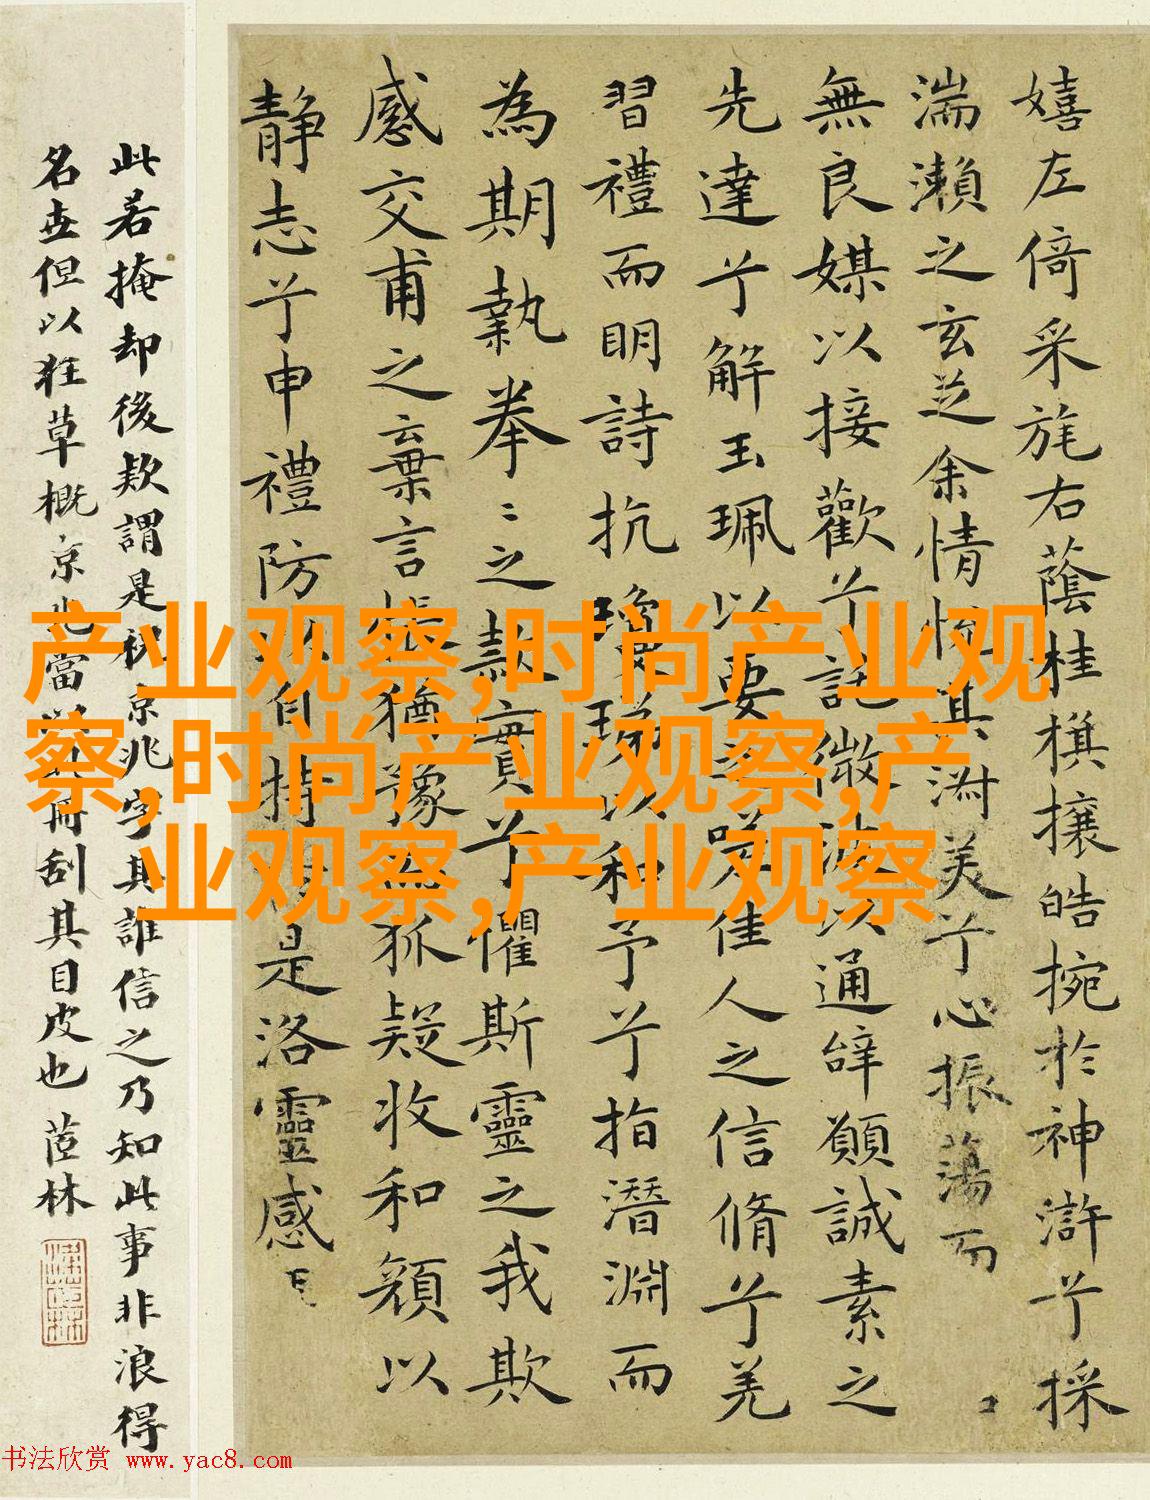 嬉左倚采旄右蔭桂旗攘皓捥於神滸兮採
湍瀨之玄芝余情悅其淑美兮心振蕩而
無良媒以接歡兮託微波以通辝願誠素之
先達兮解玉珮以要之嗟佳人之信脩兮羌
習禮而明詩抗瓊珶以和予兮指潛淵而
為期執拳〻之款實兮懼斯靈之我欺
感交甫之棄言悵猶豫而狐疑收和顏以
靜志兮申禮防以自持於是洛靈感
此若掩却後款謂是祝京兆字其誰信之乃知此事非浪得
名世但以狂草概京兆當以此冊刮其目皮也 茝林
产业观察,时尚产业观
察,时尚产业观察,产
业观察,产业观察
书法欣赏 www.yac8.com